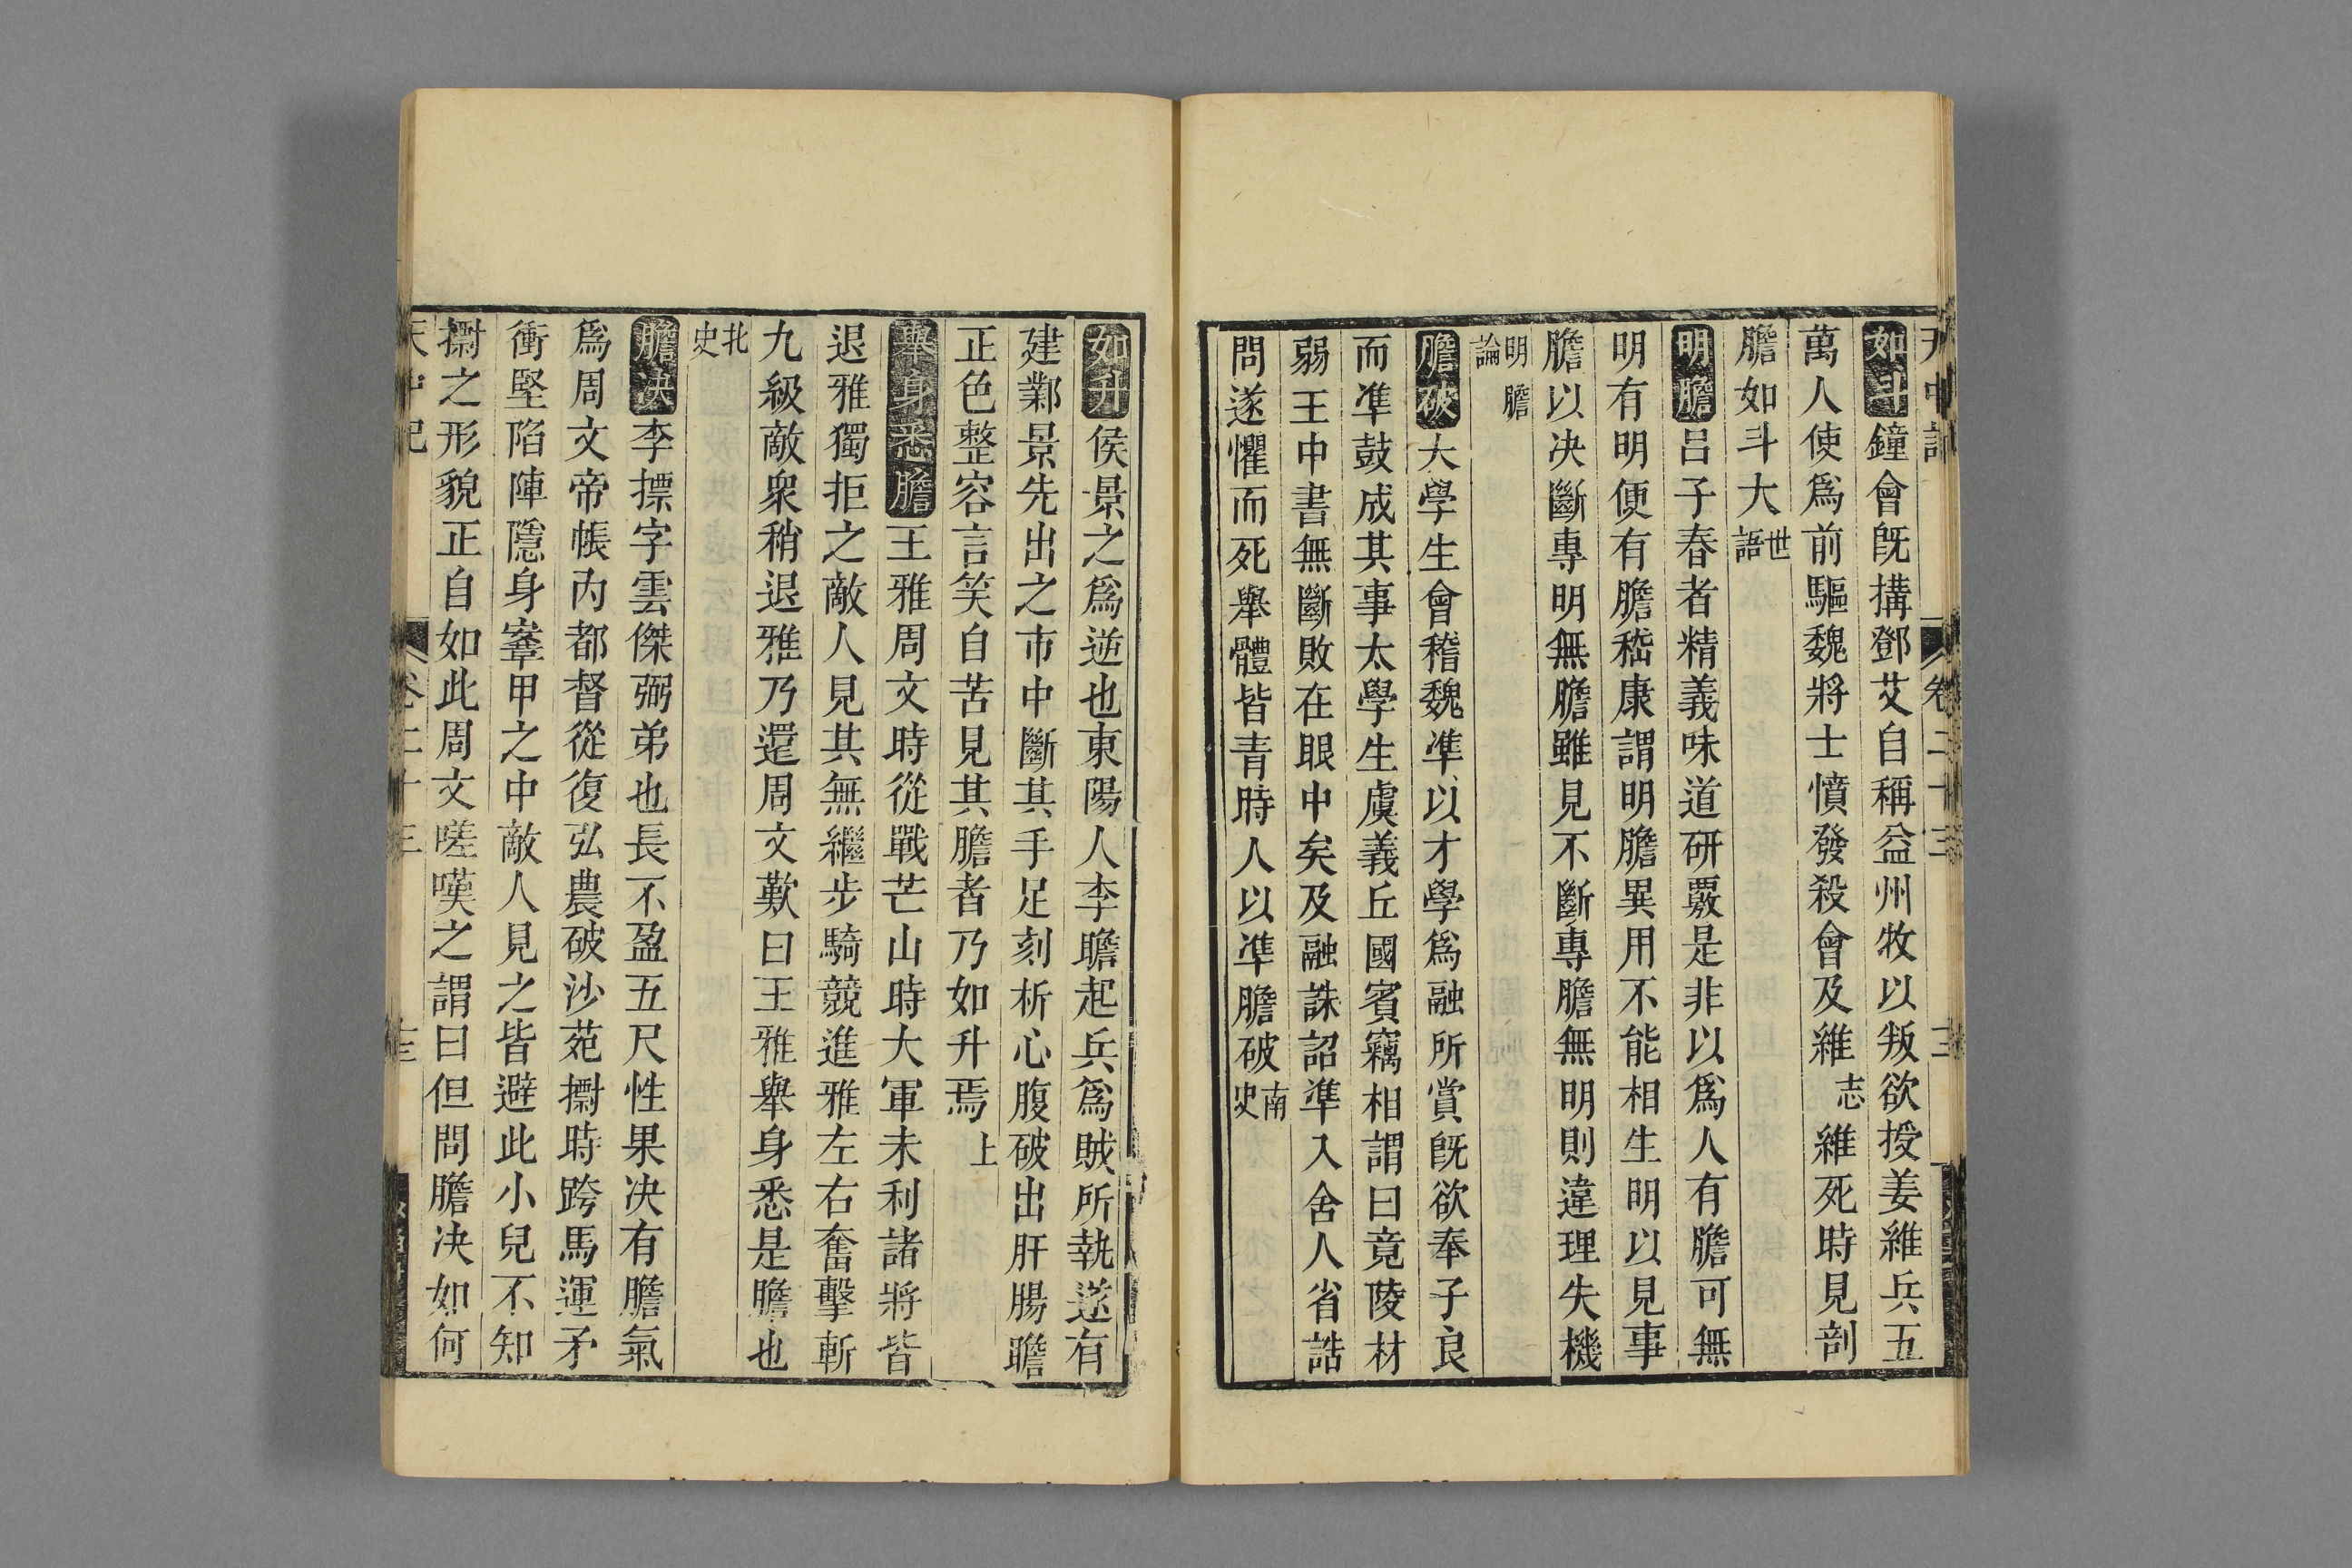 如斗鐘會旣搆鄧艾自稱益州牧以叛欲授姜維兵五
萬人使爲前驅魏將士憤發殺會及維志維死時見剖
膽如斗大世語
明膽呂子春者精義味道研覈是非以爲人有膽可無
明有明便有膽嵇康謂明膽異用不能相生明以見事
膽以决斷專明無膽雖見不斷專膽無明則違理失機
明膽論
膽破大學生會稽魏凖以才學爲融所賞旣欲奉子良
而凖鼓成其事太學生虞羲丘國賓竊相謂曰竟陵材
弱王中書無斷敗在眼中矣及融誅詔凖入舍人省詰
問遂懼而死舉體皆青時人以凖膽破南史
如升侯景之爲逆也東陽人李瞻起兵爲賊所執送有
建鄴景先出之市中斷其手足刻析心腹破出肝腸瞻
正色整容言笑自若見其膽者乃如升焉上
舉身悉膽王雅周文時從戰芒山時大軍未利諸將皆
退雅獨拒之敵人見其無繼步騎競進雅左右奮擊斬
九級敵衆稍退雅乃還周文歎曰王雅舉身悉是膽也
北史
膽决李㯹字雲傑弼弟也長不盈五尺性果决有膽氣
爲周文帝帳內都督從復弘農破沙苑㯹時跨馬運矛
衝堅陷陣隱身鞌甲之中敵人見之皆避此小兒不知
㯹之形貌正自如此周文嗟嘆之謂曰但問膽决如何
天中記 卷二十三